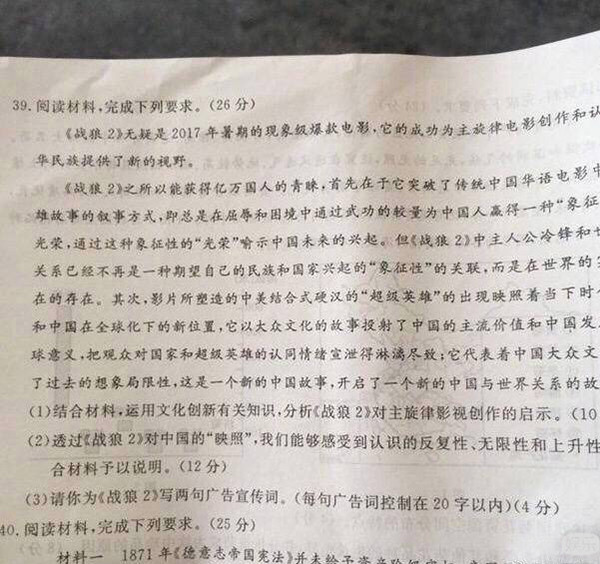 39. 阅读材料,完成下列要求。(26 分)
《战狼 2》无疑是 2017 年暑期的现象级爆款电影,它的成功为主旋律电影创作和认
华民族提供了新的视野。
《战狼 2》之所以能获得亿万国人的青睐,首先在于它突破了传统中国华语电影中
雄故事的叙事方式,即总是在屈辱和困境中通过武功的较量为中国人赢得一种“象征
光荣,通过这种象征性的“光荣”喻示中国未来的兴起。但《战狼 2》中主人公冷锋和世
关系已经不再是一种期望自己的民族和国家兴起的“象征性”的关联,而是在世界的实
在的存在。其次,影片所塑造的中美结合式硬汉的“超级英雄”的出现映照着当下时代
和中国在全球化下的新位置,它以大众文化的故事投射了中国的主流价值和中国发
球意义,把观众对国家和超级英雄的认同情绪宣泄得淋漓尽致;它代表着中国大众文
了过去的想象局限性,这是一个新的中国故事,开启了一个新的中国与世界关系的故
(1)结合材料,运用文化创新有关知识,分析《战狼 2》对主旋律影视创作的启示。(10
(2)透过《战狼 2》对中国的“映照”,我们能够感受到认识的反复性、无限性和上升性
合材料予以说明。(12 分)
(3)请你为《战狼 2》写两句广告宣传词。(每句广告词控制在 20 字以内)(4 分)
40. 阅读材料,完成下列要求。(25 分)
材料一 1871 年《德意志帝国宪法》并未给予资产阶级